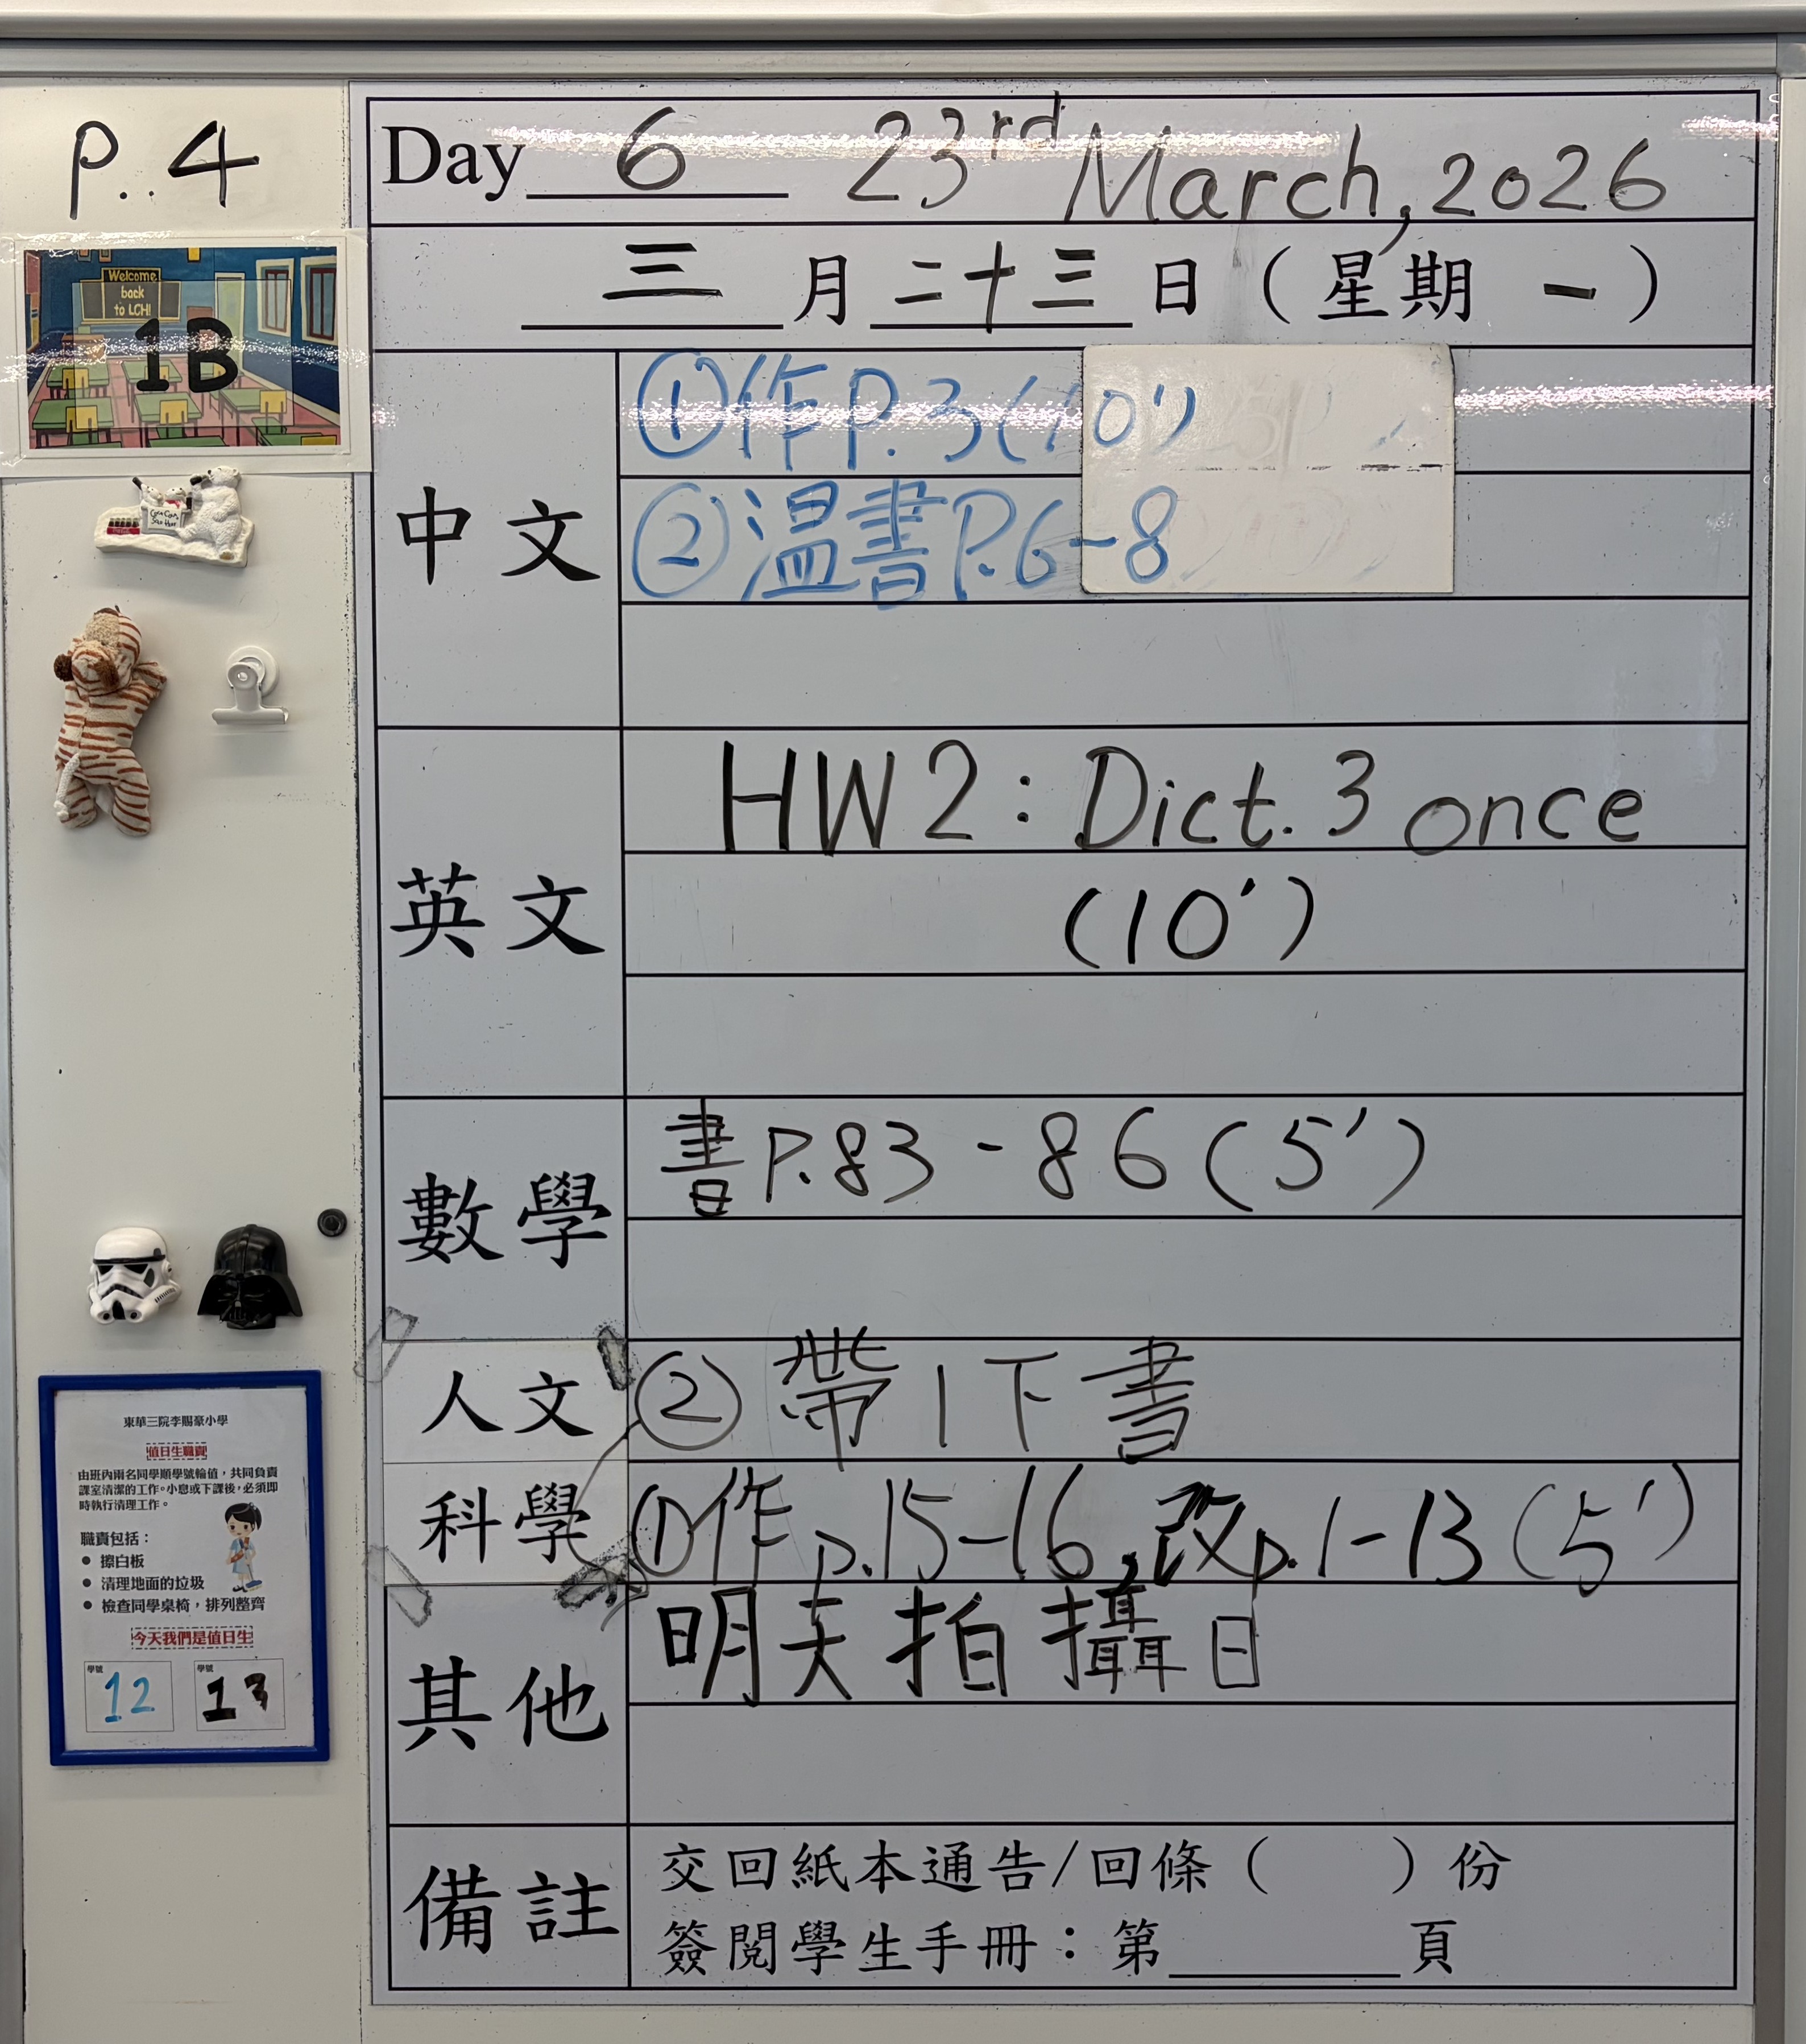 P..4
Day 6 23rd March, 2026
三 月 二十三 日 ( 星期 一 )
Welcome
back
to LCH!
1B
中文
①作P.3(10')
②温書P.6-8
英文
HW2: Dict. 3 once
(10')
數學
書P.83-86(5')
人文
②帶1下書
科學
①作p.15-16,改p.1-13(5')
其他
明天拍攝日
備註
交回紙本通告/回條( )份
簽閱學生手冊:第 頁
東華三院李賜豪小學
值日生職責
由班內兩名同學順學號輪值,共同負責
課室清潔的工作。小息或下課後,必須即
時執行清理工作。
職責包括:
● 擦白板
● 清理地面的垃圾
● 檢查同學桌椅,排列整齊
今天我們是值日生
學號 學號
12 13